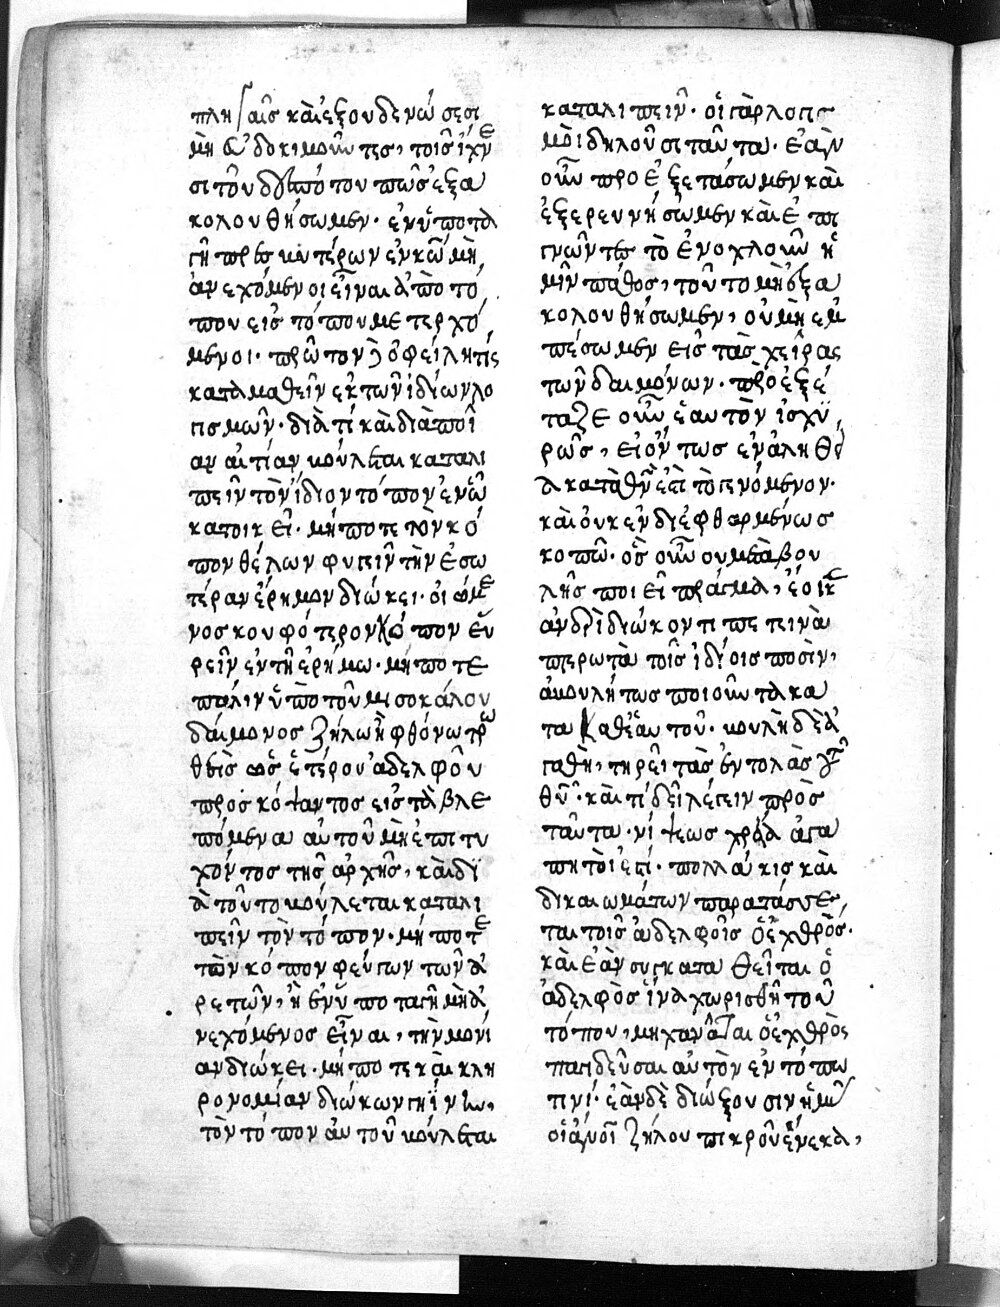 πλήσαις καὶ ἐξουδενώσεσι
μὴ εὐδοκιμοῦντες, τοῖς ἴχνε
σι τοῦ
κολουθήσωμεν. ἐν ὑποτα
γῇ πρὸς πατέρων ἐν κώμῃ
ἀνεχόμενοι εἶναι ἀπὸ τό
που εἰς τόπου μετερχό
μενοι. πρῶτον ὀφείλη τίς
καταμαθεῖν ἐκ τῶν ἰδίων λο
γισμῶν. διὰ τί καὶ διὰ ποί
αν αἰτίαν βούλεται καταλι
πεῖν τὸν ἴδιον τόπον ἐν ᾧ
κατοικεῖ. μή ποτε τὸν κό
πον θέλων φυγεῖν τὴν ἐσω
τέραν ἔρημον διώκει. οἰόμε
νος κουφότερον κόπον εὑ
ρεῖν ἐν τῇ ἐρήμω. μή ποτε
πάλιν ὑπὸ τοῦ μισοκάλου
δαίμονος ζήλω ἢ φθόνω τρω
θεὶς ὡς ἑτέρου ἀδελφοῦ
προσκόψαντος εἰς τὰ βλε
πόμενα αὐτοῦ μὴ ἐπιτυ
χόντος τῆς ἀρχῆς, καὶ δι
ὰ τοῦτο βούλεται καταλι
πεῖν τὸν τόπον. μή ποτε
τὸν κόπον φεύγων τῶν ἀ
ρετῶν, ἢ ἐν ὑποταγῇ μὴ ἀ
νεχόμενος εἶναι, τὴν μονί
αν διώκει. μή ποτε καὶ κλη
ρονομίαν διώκων γηίνων,
τὸν τόπον αὐτοῦ βούλεται
καταλιπεῖν. οἱ γὰρ λογισ
μοὶ δηλοῦσι ταῦτα. ἐὰν
οὖν προεξετάσωμεν καὶ
ἐξερευνήσωμεν καὶ ἐπι
γνῶντες τὸ ἐνοχλοῦν ἡ
μῖν πάθος, τοῦτο μὴ ἐξα
κολουθήσωμεν, οὐ μὴ ἐμ
πέσωμεν εἰς τὰς χεῖρας
τῶν δαιμόνων. προεξέ
ταζε οὖν ἑαυτὸν ἰσχυ
ρῶς, εἰ ὄντως ἐν ἀληθεί
α καταθῇ ἐπὶ τὸ γενόμενον.
καὶ οὐκ ἐν διεφθαρμένω σ
κοπῶ. ὃς οὖν συμεταβου
λῆς ποιεῖ πρᾶγμα, ἔοικε
ἀνδρὶ διώκοντι πετεινὰ
πτερωτὰ τοῖς ἰδίοις ποσίν,
ἀβουλήτως ποιοῦντα κα
τα καθ' ἑαυτοῦ. βουλὴ δὲ ἀ
γαθὴ, τηρεῖ τὰς ἐντολὰς τοῦ
θεοῦ. καὶ τί δεῖ λέγειν πρὸς
ταῦτα. νήψεως χρεία ἀγα
πητοί ἐστι. πολλάκις καὶ
δικαιωμάτων παρατάσσε
ται τοῖς ἀδελφοῖς ὁ ἐχθρός.
καὶ ἐὰν συγκαταθεῖται ὁ
ἀδελφὸς ἵνα χωρισθῆ τοῦ
τόπου, μηχανᾶται ὁ ἐχθρὸς
παιδεῦσαι αὐτὸν ἐν τόπω
τινί. ἐὰν δὲ διώξουσιν ἡμᾶς
οἱ ἄνοι ζήλου πικροῦ ἕνεκα,